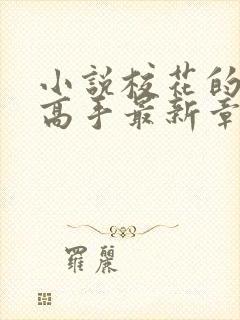 小説校花的
高手最新章
羅麗